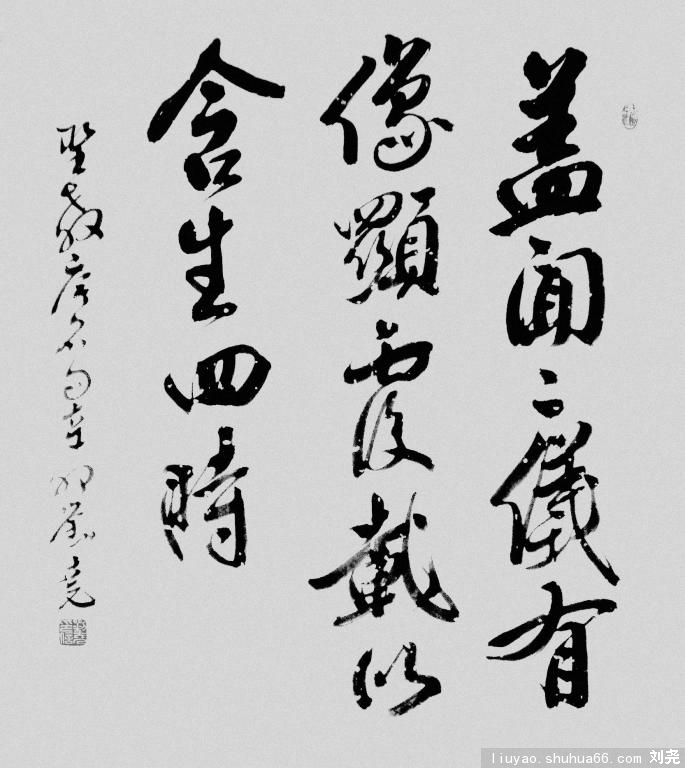 蓋聞二儀有
像顯覆載以
含生四時
聖教序名句辛卯劉堯
liuyao.shuhua66.com 刘尧